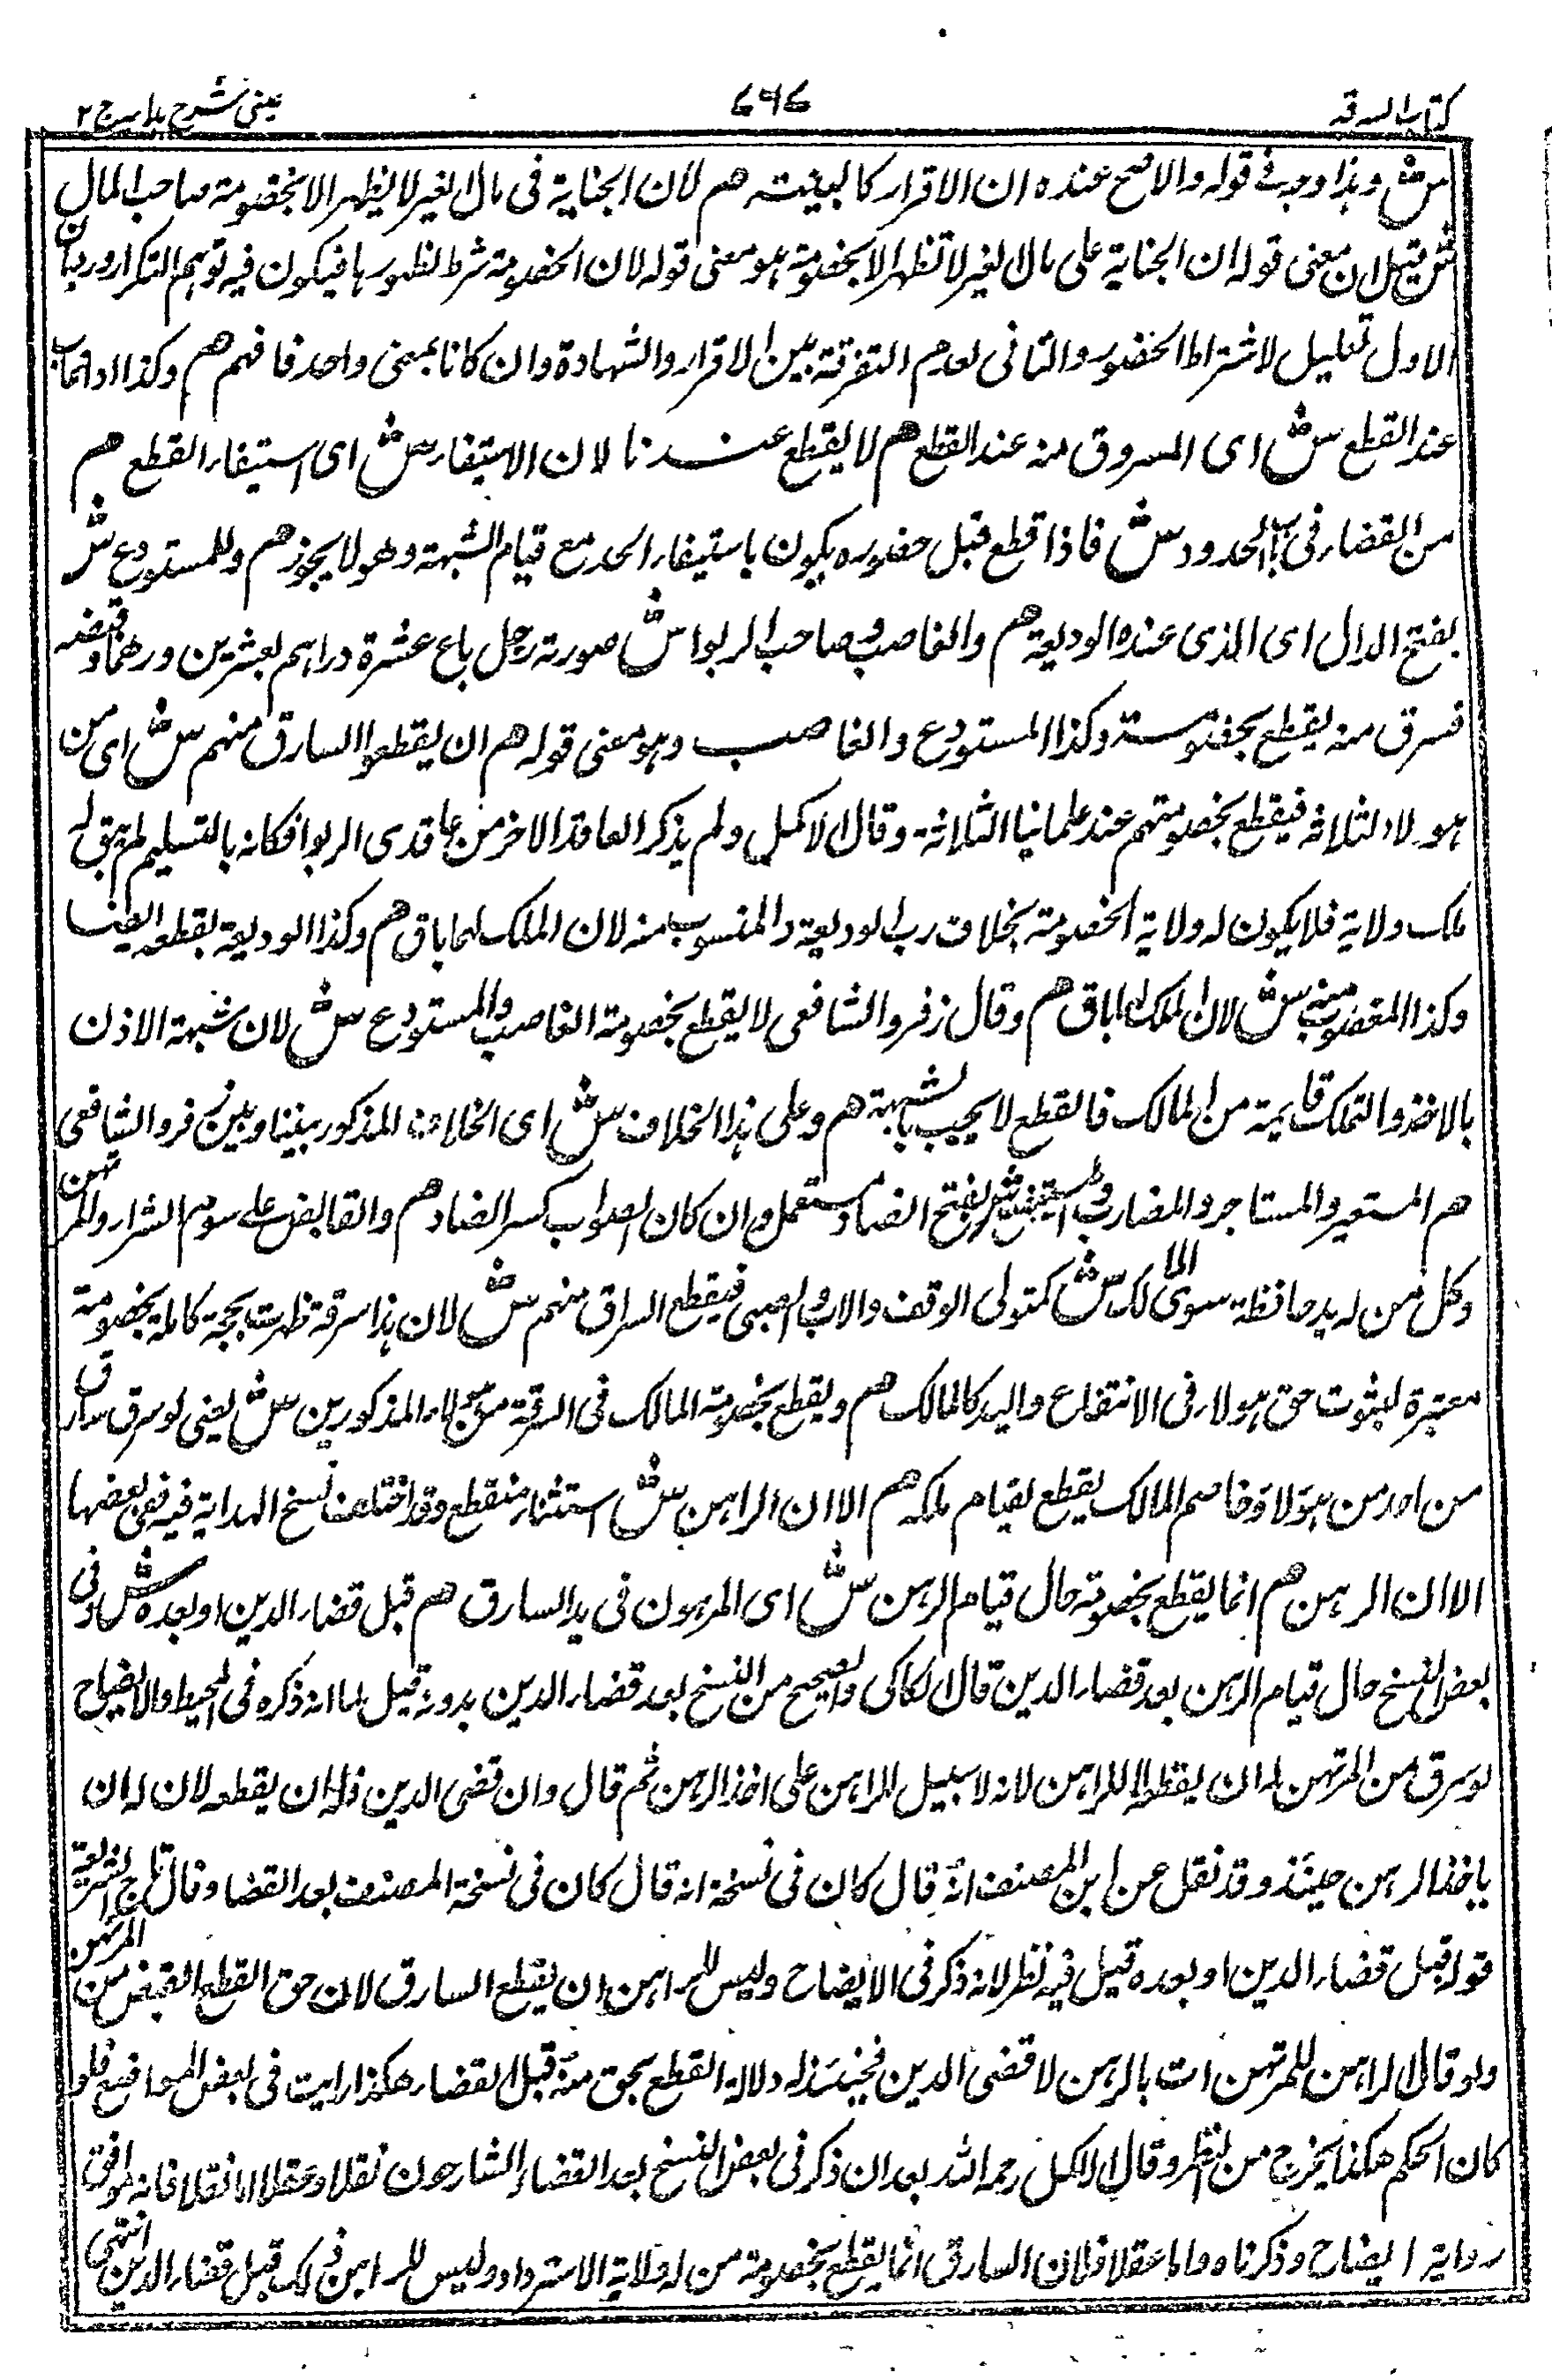 كتاب السرقة ٦٩٦ عيني شرح هدايه ج ٢
ش وهذا وجه في قوله والاصح عنده ان الاقرار كالبينة هم لان الجناية في مال الغير لا يظهر الا بخصومة صاحب المال
ش قيل لان معنى قوله ان الجناية على مال الغير لا تظهر الا بخصومة هو معنى قوله لان الخصومة شرط لظهورها فيكون فيه توهم التكرار ورد بان
الاول تعليل لاشتراط الحضور والثاني لعدم التفرقة بين الاقرار والشهادة وان كانا بمعنى واحد فافهم هم وكذا اذا غاب
عند القطع ش اى المسروق منه عند القطع هم لا يقطع عندنا لان الاستيفاء ش اى استيفاء القطع هم
من القضاء في باب الحدود ش فاذا قطع قبل حضوره يكون باستيفاء الحد مع قيام الشبهة وهو لا يجوز هم وللمستودع ش
بفتح الدال اى الذى عنده الوديعة هم والغاصب وصاحب الربوا ش صورته رجل باع عشرة دراهم بعشرين درهما وقبضه
فسرق منه يقطع بخصومته وكذا المستودع والغاصب وهو معنى قوله هم ان يقطعوا السارق منهم ش اى من
هولاء الثلاثة فيقطع بخصومتهم عند علمائنا الثلاثة وقال الاكمل ولم يذكر العاقد الاخر من عاقدى الربوا فكانه بالتسليم لم يبق له
ملك ولاية فلا يكون له ولاية الخصومة بخلاف رب الوديعة والمغصوب منه لان الملك لهما باق هم وكذا الوديعة بقطعه ايضا
وكذا المغصوب منه ش لان الملك لها باق هم وقال زفر والشافعى لا يقطع بخصومة الغاصب والمستودع ش لان شبهة الاذن
بالاخذ والتملك قايمة من المالك فالقطع لا يجب بالشبهة هم وعلى هذا الخلاف ش اى الخلاف المذكور بيننا وبين زفر والشافعى
هم المستعير والمستاجر والمضارب والمستبضع ش بفتح الضاد مستعمل وان كان الصواب كسر الضاد هم والقابض على سوم الشراء والمرتهن
وكل من له يد حافظة سوى المالك ش كمتولى الوقف والاب والوصى فيقطع السراق منهم ش لان هذا سرقة ظهرت بحجة كاملة بخصومة
معتبرة لثبوت حق هولاء في الانتفاع واليد كالمالك هم ويقطع بخصومة المالك في السرقة من هولاء المذكورين ش يعنى لو سرق سارق
من احد من هؤلاء وخاصم المالك يقطع لقيام ملكه هم الا ان الراهن ش استثناء منقطع وقد اختلف نسخ الهداية فيه ففى بعضها
الا ان الرهن هم انما يقطع بخصومته حال قيام الرهن ش اى المرهون في يد السارق هم قبل قضاء الدين او بعده ش وفى
بعض النسخ حال قيام الرهن بعد قضاء الدين قال الكاكى والصحيح من النسخ بعد قضاء الدين بدونه قيل لما انه ذكره في المحيط والايضاح
لو سرق من المرتهن له ان يقطعه لا للراهن لانه لا سبيل للراهن على اخذ الرهن ثم قال وان قضى الدين فله ان يقطعه لان له ان
ياخذ الرهن حينئذ وقد نقل عن ابن المصنف انه قال كان في نسخة انه قال كان في نسخة المصنف بعد القضا وقال تاج الشريعة
قوله قبل قضاء الدين او بعده قيل فيه نظر لانه ذكر في الايضاح وليس للراهن ان يقطع السارق لان حق القطع القبض من المرتهن
ولو قال الراهن للمرتهن ات بالرهن لاقضى الدين فحينئذ له دلالة القطع بحق منه قبل القضاء هكذا رايت في بعض المواضع فلو
كان الحكم هكذا يخرج من النظر وقال الاكمل رحمه الله بعد ان ذكر في بعض النسخ بعد القضاء الشارحون نقلا وعقلا اما نقلا فانه موافق
رواية ايضاح وذكرناه واما عقلا فلان السارق انما يقطع بخصومة من له ولاية الاسترداد وليس للراهن ذلك قبل قضاء الدين انتهى